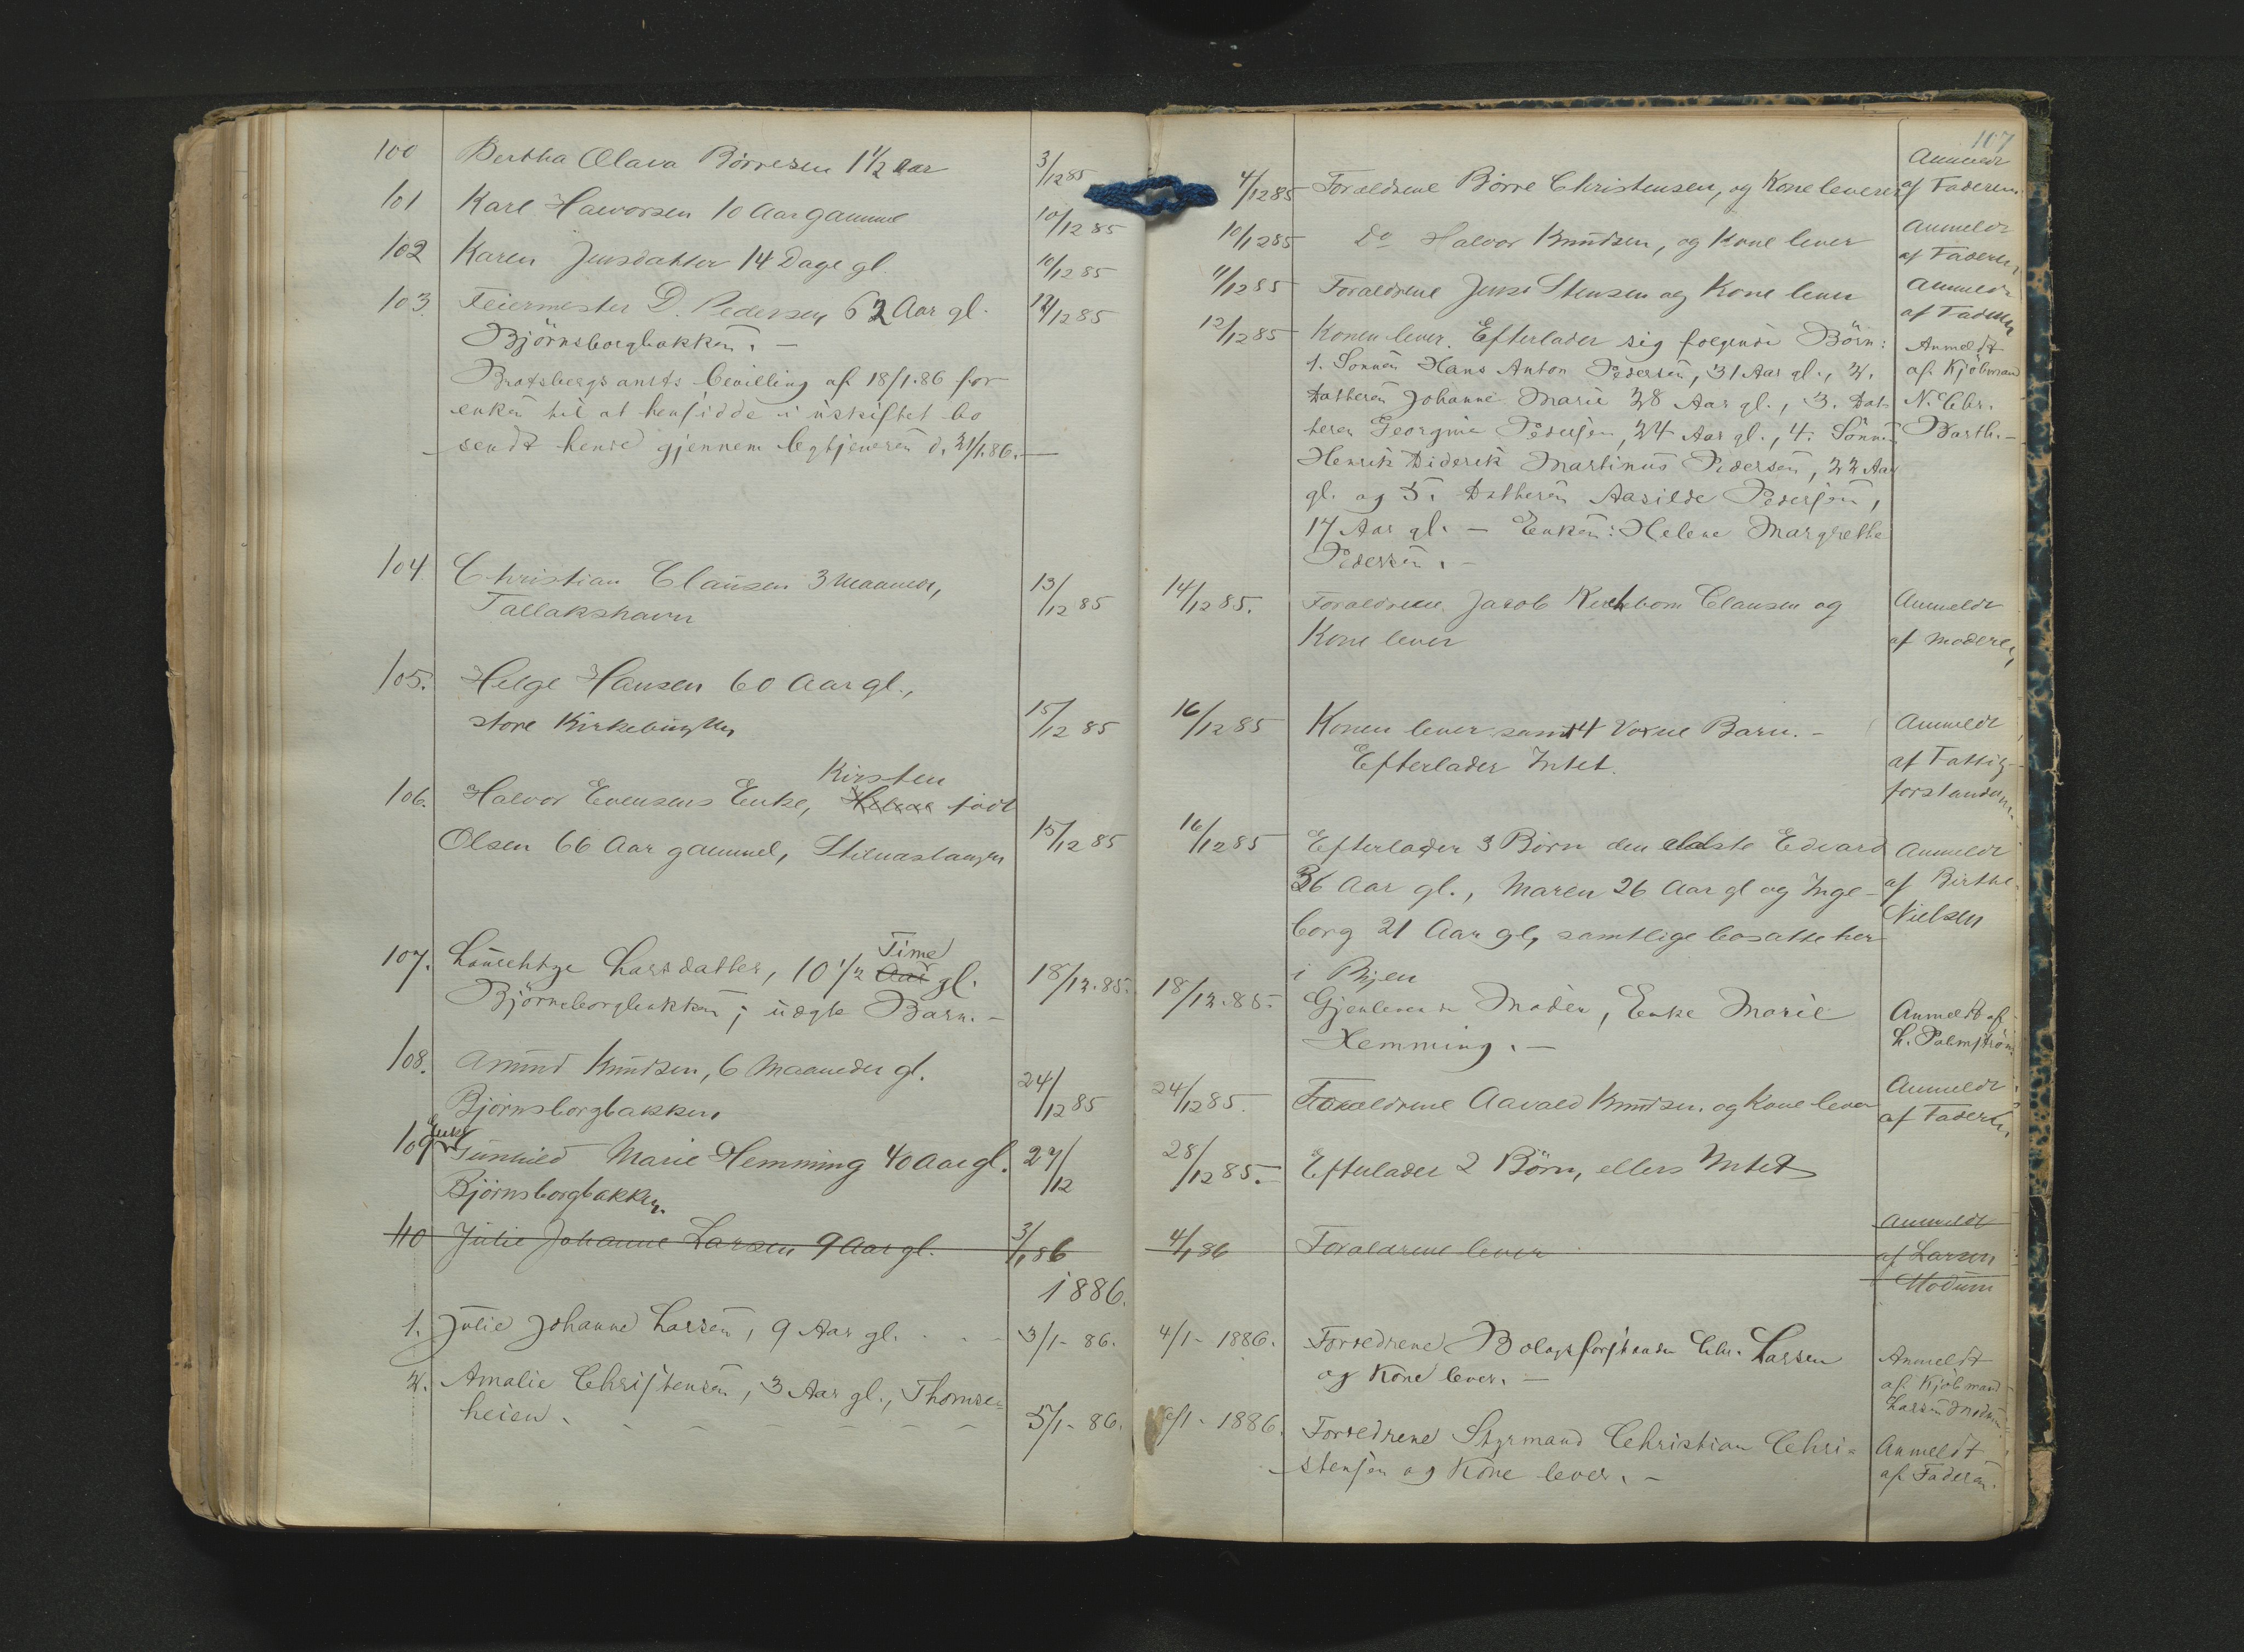 100 Bertha Olava Börresen 1 1/2 Aar 3/12 85
101 Karl Halvorsen 10 Aar gammel 10/12 85
102 Karen Jensdatter 14 Dage gl. 10/12 85
103. Feiermester D. Pedersen 62 Aar gl. 12/12 85
Björnsborgbakken. —
Bratsbergs amts bevilling af 18/1.86 for
enken til at hensidde i uskiftet bo
sendt hende gjennem d. 21/1.86. —
104. Christian Clausen 3 Maaneder, 13/12 85
Tallakshavn
105. Helge Hansen 60 Aar gl., 15/12 85
store Kirkebugten
Kirsten
106. Halvor Evensens Enke, Helene född
Olsen 66 Aar gammel, Stilnastangen 15/12 85
Time
107. Larsdatter, 10 1/2 Aar gl. 18/12.85.
Björnsborgbakken; uægte Barn. —
108. Amund Knudsen, 6 Maaneder gl. 24/12 85
Björnsborgbakken
Enke
109 Gunhild Marie Hemming 40 Aar gl. 27/12
Björnsborgbakken.
110 Julie Johanne Larsen 9 Aar gl. 3/1 86
1886.
1. Julie Johanne Larsen, 9 Aar gl. . . - 3/1 - 86.
2. Amalie Christensen, 3 Aar gl., Thomse=
heien. - - - - - - 5/1 - 86.
107
Anmeldt
4/12 85 Foraeldrene Börre Christensen, og Kone lever af Faderen
10/12 85 Do Halvor Knudsen, og Kone lever Anmeldt
af Faderen
11/12 85 Foraeldrene Jens Stensen og Kone lever Anmeldt
af Faderen
12/12 85 Konen lever. Efterlader sig følgende Börn: Anmeldt
1. Sønnen Hans Anton Pedersen, 31 Aar gl., 2. af Kjöbmand
Datteren Johanne Marie 28 Aar gl., 3. Dat- N. Chr.
teren Georgine Pedersen, 24 Aar gl., 4. Sønnen Barth. —
Henrik Diderik Martinus Pedersen, 22 Aar
gl. og 5. Datteren Aasilde Pedersen,
17 Aar gl. — Enken: Helene Margrethe
Pedersen. —
14/12 85. Foraeldrene Jacob Clausen og Anmeldt
Kone lever af Moderen
16/12 85 Konen lever samt 4 Voxne Barn. — Anmeldt
Efterlader Intet. af Fattig-
forstanderen
16/12 85 Efterlader 3 Börn den ældste Edvard Anmeldt
36 Aar gl., Maren 26 Aar gl og Inge- af Birthe
borg 21 Aar gl, samtlige bosatte her Nielsen
i Byen
18/12.85. Gjenlevende Moder, Enke Marie Anmeldt af
Hemming. — L. Palmström
24/12 85. Foraeldrene Aavald Knudsen og Kone lever Anmeldt
af Faderen
28/12 85. Efterlader 2 Börn, ellers Intet
4/1 86 Foraeldrene lever Anmeldt
af Larsen
Modum
4/1 - 1886. Forældrene Bolagsforstander Chr. Larsen Anmeldt
og Kone lever. — af Kjöbmand
Larsen Modum
6/1 - 1886. Forældrene Styrmand Christian Chri= Anmeldt
stensen og Kone lever. — af Faderen.